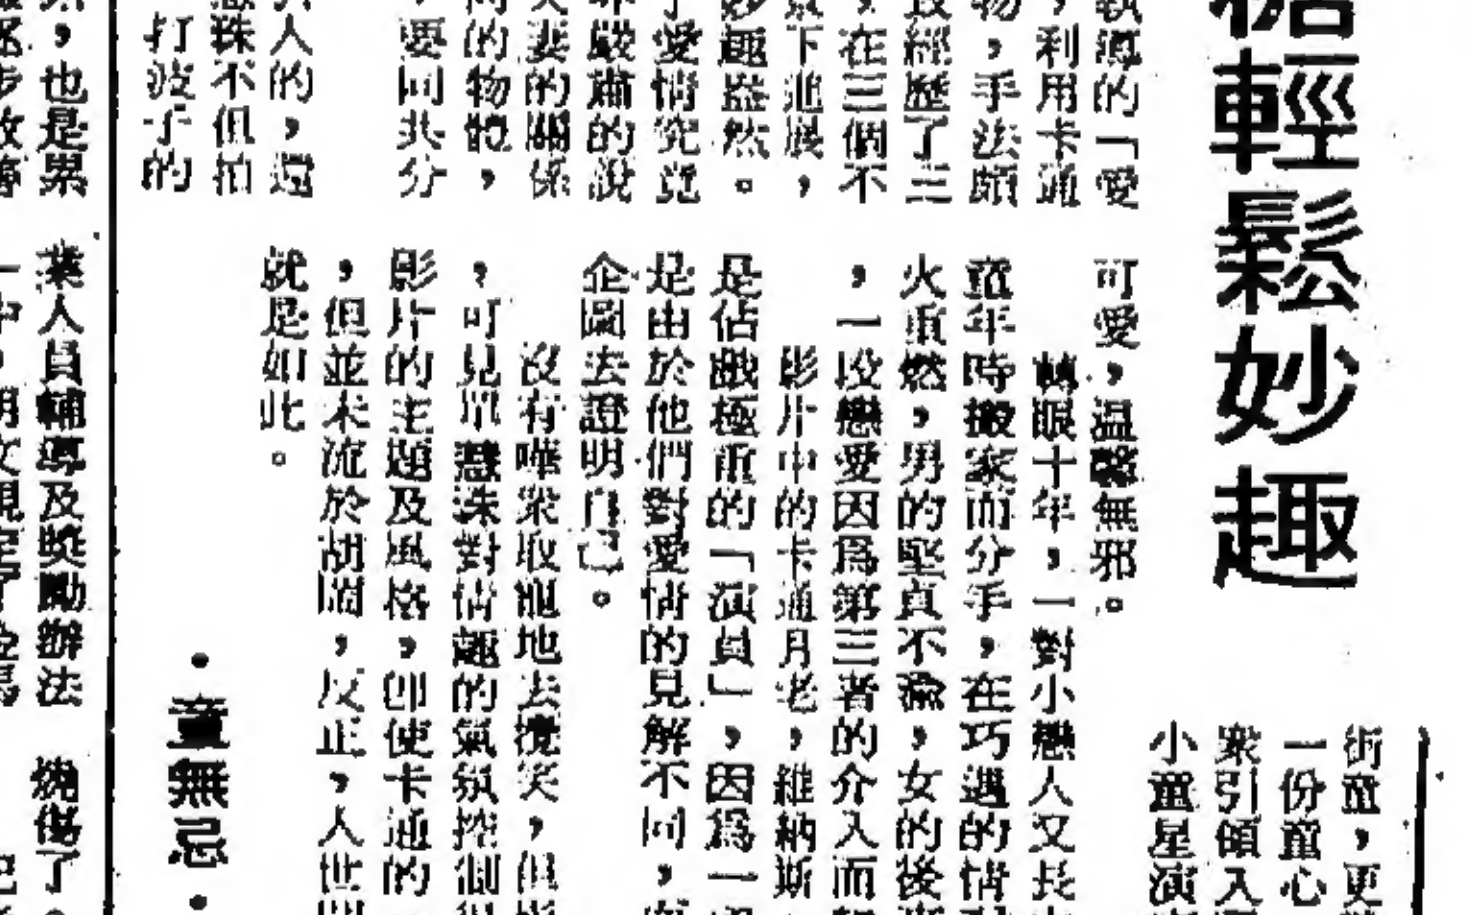 輕鬆妙趣
街童，更
一份童心
衆引領入
小童星演
執導的「愛
，利用卡通
物，手法頗
經歷了三
，在三個不
下進展，
妙趣盎然。
愛情究竟
嚴肅的說
夫妻的關係
的物體，
，要同共分
人的，還
珠不但拍
打波子的
可愛，温馨無邪。
轉眼十年，一對小戀人又長
童年時搬家而分手，在巧遇的情
火重燃，男的堅貞不渝，女的後
，一段戀愛因爲第三者的介入而
影片中的卡通月老，維納斯
是佔戲極重的「演員」，因爲一
是由於他們對愛情的見解不同，
企圖去證明自己。
沒有嘩衆取寵地去攪笑，但
，可見單慧珠對情趣的氣氛控制
影片的主題及風格，卽使卡通的
，但並未流於胡鬧，反正，人世
就是如此。
•童無忌•
，也是累
業人員輔導及獎勵辦法
燒傷了。